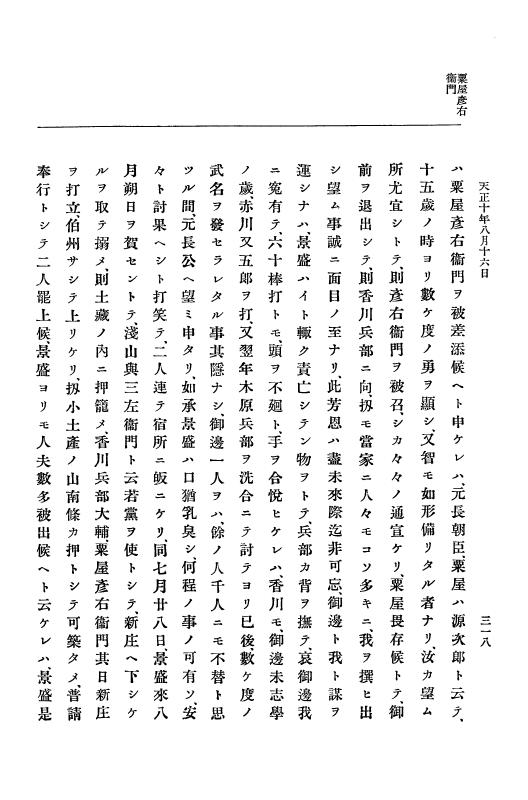 天正十年八月十六日
三一八
粟屋彥右
衞門
ハ粟屋彥右衞門ヲ被差添候ヘト申ケレハ、元長朝臣、粟屋ハ源次郎ト云テ、
十五歲ノ時ヨリ數ケ度ノ勇ヲ顯シ、又智モ如形備リタル者ナリ、汝カ望ム
所尤宜シトテ、則彥右衞門ヲ被召、シカ々々ノ通宣ケリ、粟屋畏存候トテ、御
前ヲ退出シテ、則香川兵部ニ向、扨モ當家ニ人々モコソ多キニ、我ヲ撰ヒ出
シ望ム事誠ニ面目ノ至ナリ、此芳恩ハ盡未來際迄非可忘、御邊ト我ト謀ヲ
運シナハ、景盛ハイト輙ク責亡シテン物ヲトテ、兵部カ背ヲ撫テ、哀御邊我
ニ寃有テ、六十棒打トモ、頭ヲ不廻ト、手ヲ合悅ヒケレハ、香川モ、御邊未志學
ノ歲、赤川又五郎ヲ打、又翌年木原兵部ヲ洗合ニテ討テヨリ已後、數ケ度ノ
武名ヲ發セラレタル事其隱ナシ、御邊一人ヲハ、餘ノ人千人ニモ不替ト思
ツル間、元長公ヘ望ミ申タリ、如承景盛ハ口猶乳臭シ、何程ノ事ノ可有ソ、安
々ト討果ヘシト打笑テ、二人連テ宿所ニ皈ニケリ、同七月廿八日景盛來八
月朔日ヲ賀セントテ、淺山與三左衞門ト云若黨ヲ使トシテ、新庄ヘ下シケ
ルヲ取テ搦メ、則土藏ノ內ニ押籠メ、香川兵部大輔粟屋彥右衞門其日新庄
ヲ打立、伯州サシテ上リケリ、扨小土產ノ山南條カ押トシテ可築タメ、普請
奉行トシテ二人罷上候、景盛ヨリモ人夫數多被出候ヘト云ケレハ、景盛是